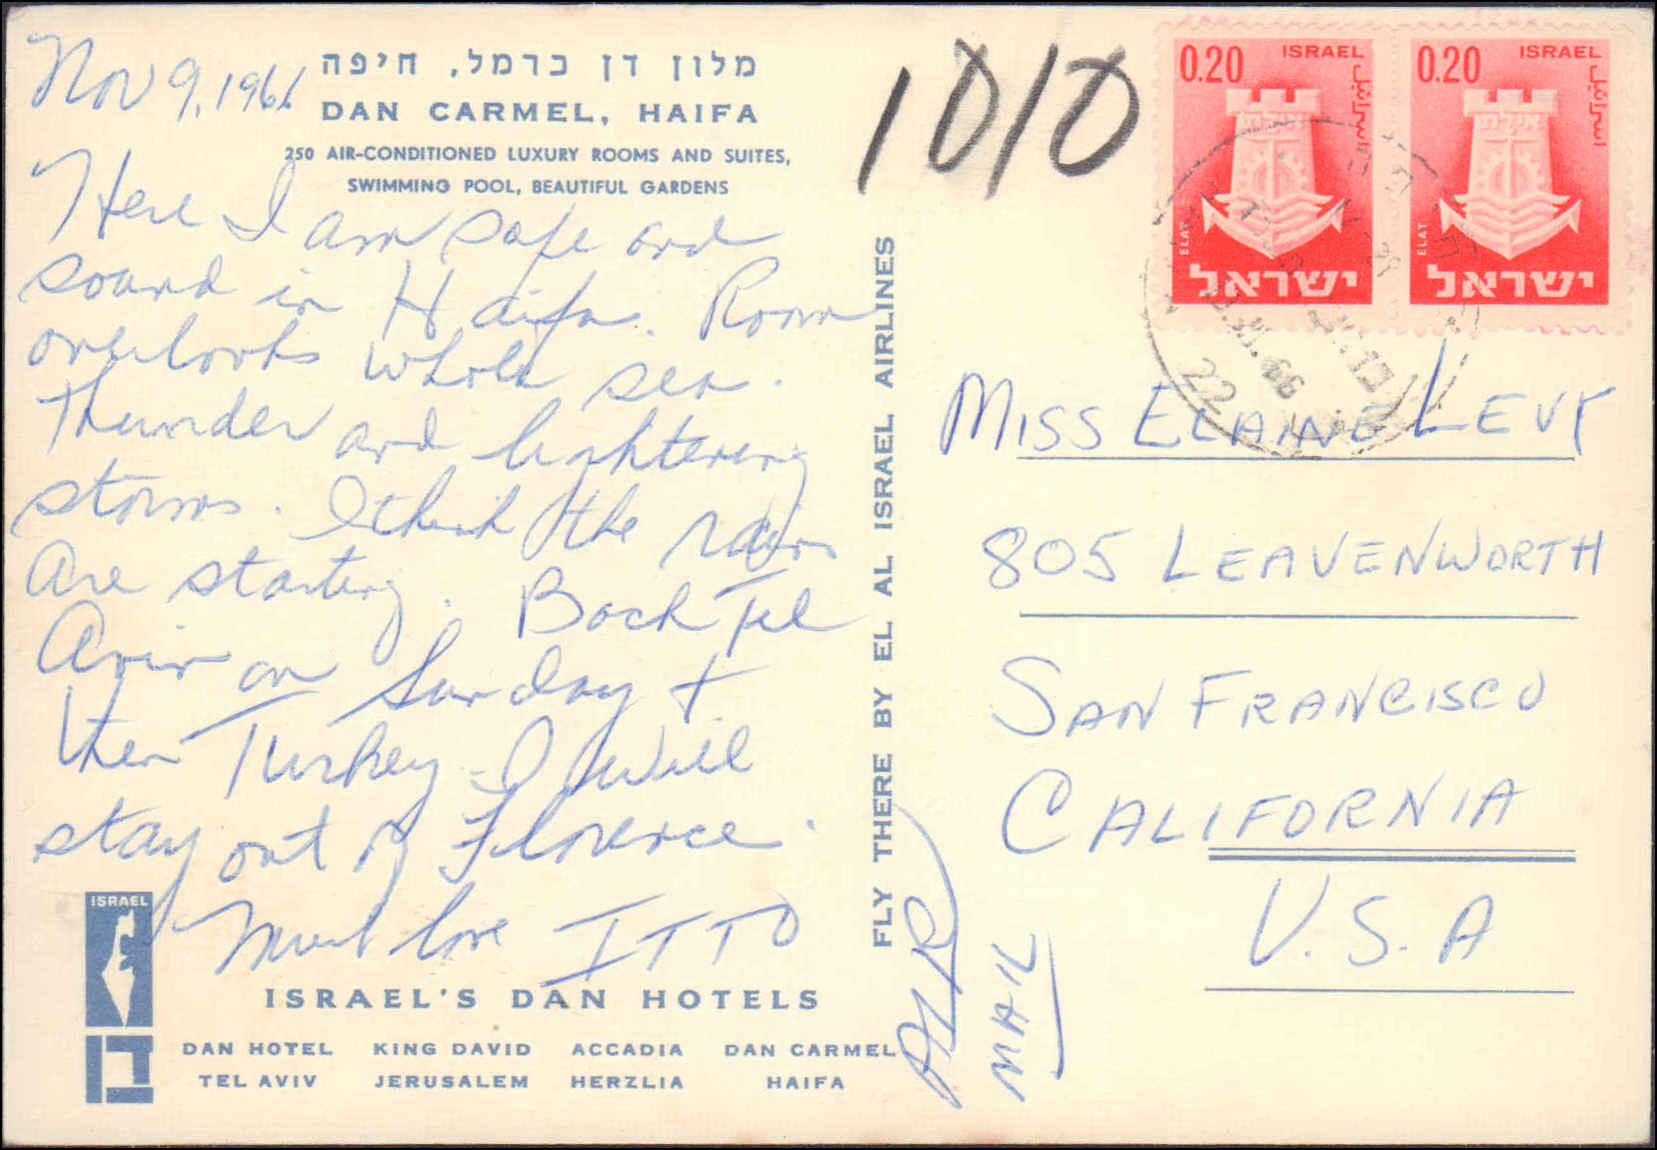 Nov 9, 1966
מלון דן כרמל, חיפה
DAN CARMEL, HAIFA
250 AIR-CONDITIONED LUXURY ROOMS AND SUITES,
SWIMMING POOL, BEAUTIFUL GARDENS
Here I am safe and
sound in Haifa. Room
overlooks whole sea.
Thunder and lightening
storms. I think the rains
are starting. Back Tel
Aviv on Sunday +
then Turkey - I will
stay out of Florence.
Much love ITTO
ISRAEL
דן
ISRAEL'S DAN HOTELS
DAN HOTEL KING DAVID ACCADIA DAN CARMEL
TEL AVIV JERUSALEM HERZLIA HAIFA
FLY THERE BY EL AL ISRAEL AIRLINES
AIR
MAIL
1010
0.20 ISRAEL
اسرائيل
אילת
ELAT
ישראל
0.20 ISRAEL
اسرائيل
אילת
ELAT
ישראל
22
MISS ELAINE LEVY
805 LEAVENWORTH
SAN FRANCISCO
CALIFORNIA
U.S.A